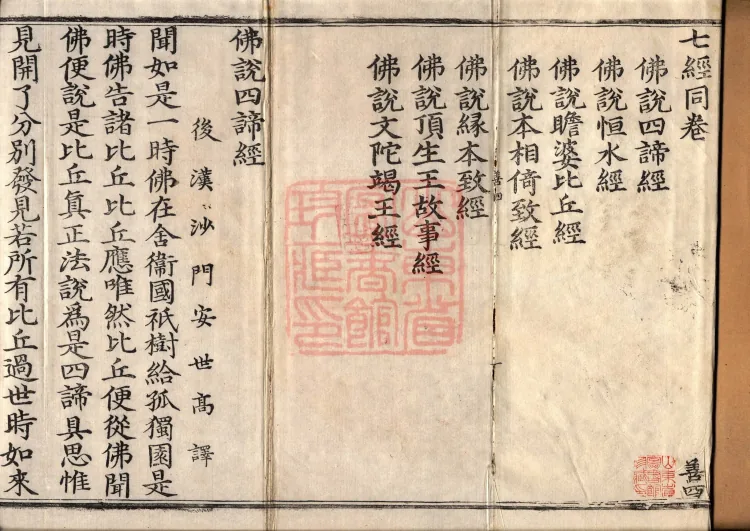 七經同卷
佛說四諦經
佛說恒水經
佛說瞻婆比丘經
佛說本相倚致經
佛說緣本致經
佛說頂生王故事經
佛說文陀竭王經
善四
善四
山東省圖書館
佛說四諦經
後漢沙門安世高譯
聞如是一時佛在舍衞國祇樹給孤獨園是
時佛告諸比丘比丘應唯然比丘便從佛聞
佛便說是比丘眞正法說爲是四諦具思惟
見開了分別發見若所有比丘過世時如來